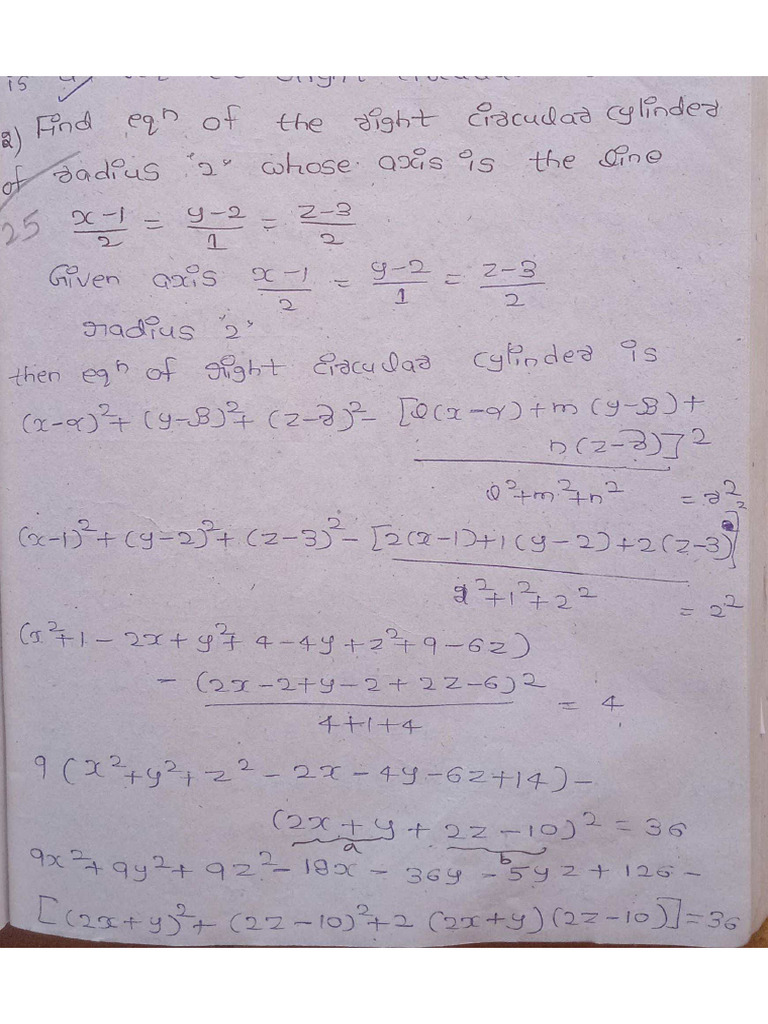 is
2) Find eqn of the right circular cylinder
of radius "2" whose axis is the line
25 x-1/2 = y-2/1 = z-3/2
Given axis x-1/2 = y-2/1 = z-3/2
radius "2"
then eqn of right circular cylinder is
(x-α)²+(y-β)²+(z-γ)²- [l(x-α)+m(y-β)+
n(z-γ)]²
l²+m²+n² = r²
(x-1)²+(y-2)²+(z-3)²-[2(x-1)+1(y-2)+2(z-3)]²
2²+1²+2² = 2²
(x²+1-2x+y²+4-4y+z²+9-6z)
- (2x-2+y-2+2z-6)²
4+1+4 = 4
9(x²+y²+z²-2x-4y-6z+14)-
(2x+y+2z-10)² = 36
a b
9x²+9y²+9z²-18x-36y-54z+126-
[(2x+y)²+(2z-10)²+2(2x+y)(2z-10)]=36